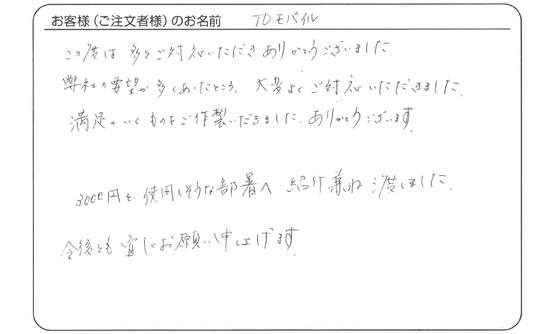 お客様（ご注文者様）のお名前 TDモバイル
この度は 多々ご対応いただき ありがとうございました。
弊社の要望が多くあったところ、大変よくご対応いただきました。
満足のいくものをご作製いただきました。ありがとうございます。
3000円を使用しそうな部署へ 紹介兼ね 渡しました。
今後とも宜しくお願い申し上げます。